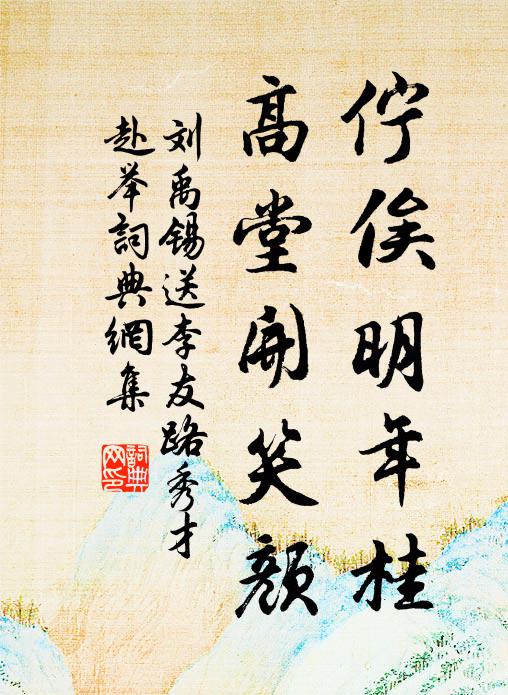 佇俟明年桂
高堂開笑顏
刘禹锡送李友路秀才
赴举詞典網集
詞典
网印